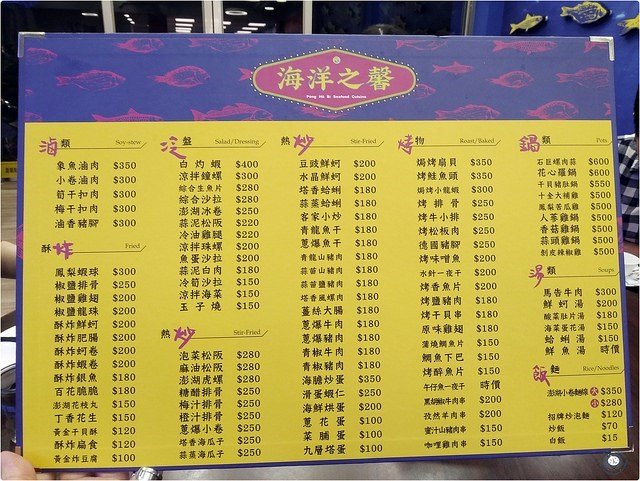 海洋之馨
Pong Hu Bi Seafood Cuisine
滷類 Soy-stew
象魚滷肉 $350
小卷滷肉 $300
筍干扣肉 $300
梅干扣肉 $300
滷香豬腳 $300
酥炸 Fried
鳳梨蝦球 $300
椒鹽排骨 $250
椒鹽雞翅 $200
椒鹽龍珠 $200
酥炸鮮蚵 $200
酥炸肥腸 $200
酥炸蚵卷 $200
酥炸蝦卷 $200
酥炸銀魚 $180
百花脆脆 $180
澎湖花枝丸 $150
丁香花生 $150
黃金干貝酥 $120
酥炸扁食 $120
黃金炸豆腐 $100
泛盤 Salad/Dressing
白灼蝦 $400
涼拌鐘螺 $300
綜合生魚片 $280
綜合沙拉 $280
澎湖冰卷 $250
蒜泥松阪 $220
冷油雞腿 $220
涼拌珠螺 $200
魚蛋沙拉 $200
蒜泥白肉 $180
冷筍沙拉 $150
涼拌海菜 $150
玉子燒 $150
熱炒 Stir-Fried
泡菜松阪 $280
麻油松阪 $280
澎湖虎螺 $280
糖醋排骨 $250
梅汁排骨 $250
橙汁排骨 $250
蔥爆小卷 $250
塔香海瓜子 $250
蒜蒸海瓜子 $250
熱炒 Stir-Fried
豆豉鮮蚵 $200
水晶鮮蚵 $200
塔香蛤蜊 $180
蒜蒸蛤蜊 $180
客家小炒 $180
青龍魚干 $180
蔥爆魚干 $180
青龍山豬肉 $180
蒜苗山豬肉 $180
蒜苗鹽豬肉 $180
塔香風螺肉 $180
薑絲大腸 $180
蔥爆牛肉 $180
蔥爆豬肉 $180
青椒牛肉 $180
青椒豬肉 $180
海膽炒蛋 $350
滑蛋蝦仁 $250
海鮮烘蛋 $200
蔥花蛋 $100
菜脯蛋 $100
九層塔蛋 $100
烤物 Roast/Baked
焗烤扇貝 $350
烤鮭魚頭 $350
焗烤小龍蝦 $300
烤排骨 $250
烤牛小排 $250
烤松板肉 $250
德國豬腳 $250
烤味噌魚 $200
水針一夜干 $200
烤香魚片 $200
烤鹽豬肉 $180
烤干貝串 $180
原味雞翅 $180
蒲燒鯛魚片 $150
鯛魚下巴 $150
烤醉魚片 $150
午仔魚一夜干 時價
黑胡椒牛肉串 $200
孜然羊肉串 $200
蜜汁山豬肉串 $150
咖哩雞肉串 $150
鍋類 Pots
石巨螺肉蒜 $600
花心羅鍋 $600
干貝豬肚鍋 $550
十全大補雞 $500
鳳梨苦瓜雞 $500
人蔘雞鍋 $500
香菇雞鍋 $500
蒜頭雞鍋 $500
剝皮辣椒雞 $500
湯類 Soups
馬告牛肉 $300
鮮蚵湯 $200
酸菜肚片湯 $180
海菜蛋花湯 $150
蛤蜊湯 $150
鮮魚湯 時價
飯麵 Rice/Noodles
澎湖小卷麵線 大 $350
小 $280
招牌炒泡麵 $120
炒飯 $70
白飯 $15